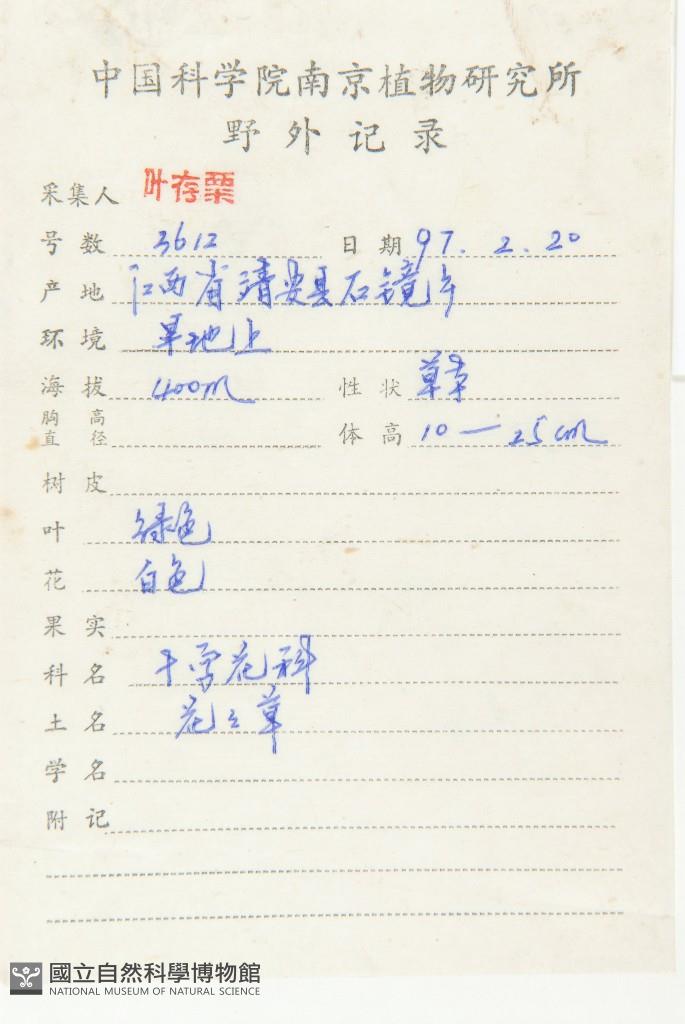 中国科学院南京植物研究所
野外记录
采集人 叶存粟
号数 3612 日期 97. 2. 20
产地 江西省靖安县石镜乡
环境 旱地上
海拔 400m 性状 草本
胸高直径 体高 10—25cm
树皮
叶 绿色
花 白色
果实
科名 十字花科
土名
学名
附记
國立自然科學博物館
NATIONAL MUSEUM OF NATURAL SCIENCE